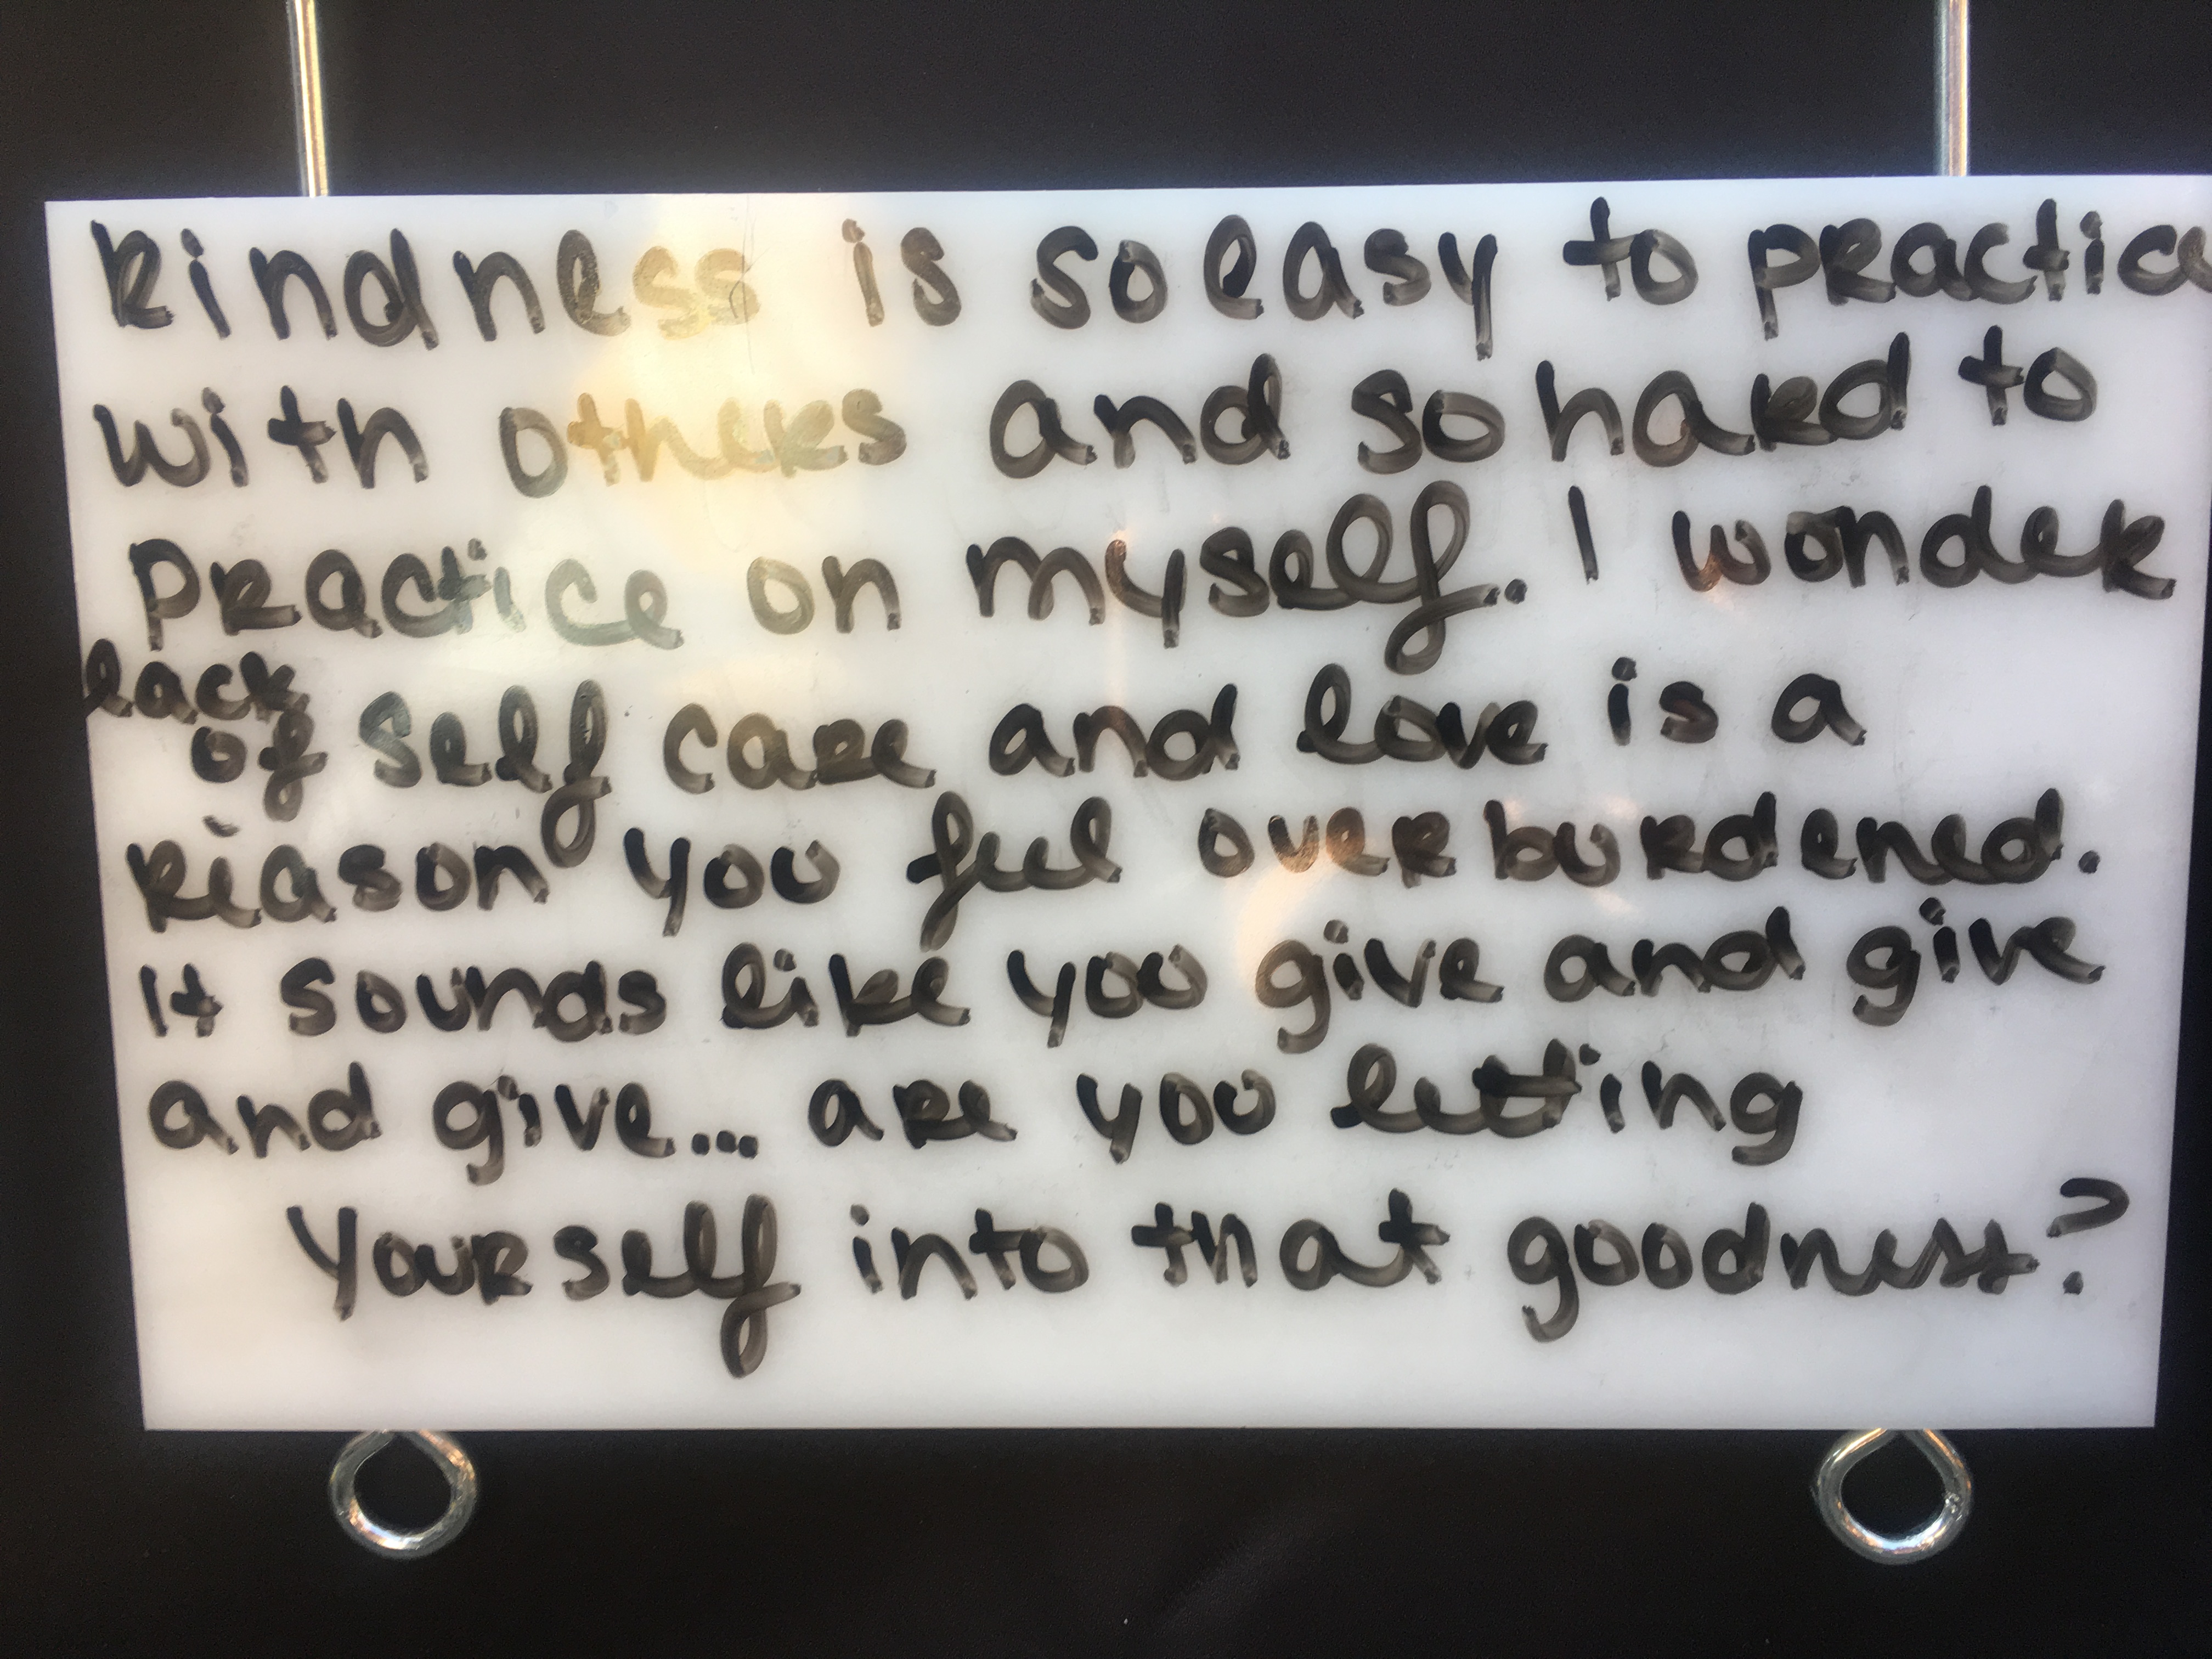 kindness is so easy to practice
with others and so hard to
practice on myself. I wonder
lack
of self care and love is a
reason you feel overburdened.
It sounds like you give and give
and give... are you letting
yourself into that goodness?